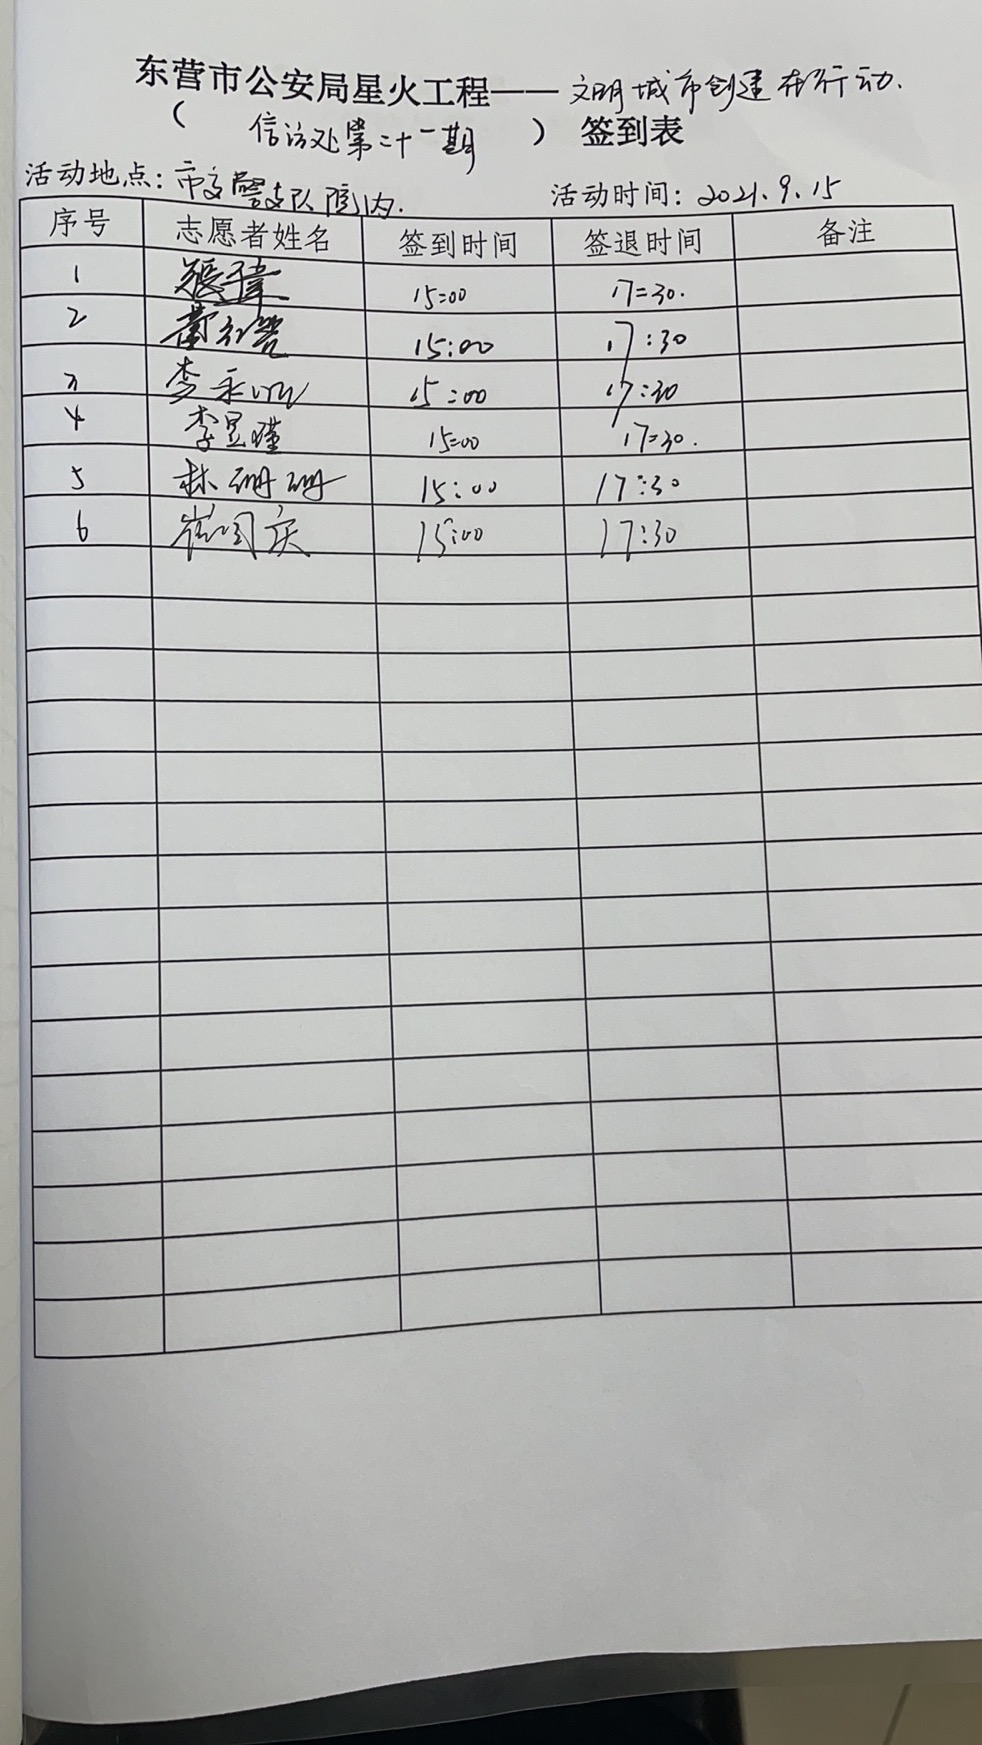 东营市公安局星火工程——文明城市创建在行动.
（信访处第二十一期）签到表
活动地点：市交警支队院内. 活动时间：2021.9.15
序号 志愿者姓名 签到时间 签退时间 备注
1 张 15:00 17:30.
2 15:00 17:30
3 李永 15:00 17:30
4 李昱瑾 15:00 17:30.
5 林珊珊 15:00 17:30
6 崔国庆 15:00 17:30